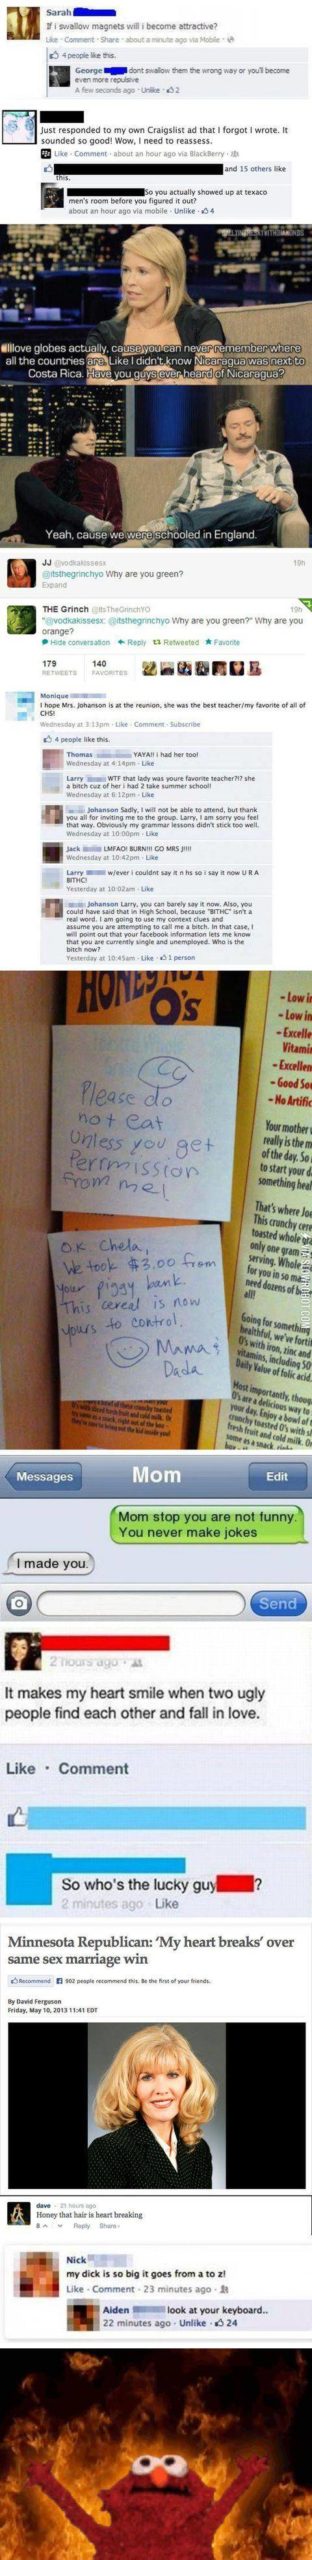 Sarah
If i swallow magnets will i become attractive?
Like · Comment · Share · about a minute ago via Mobile ·
4 people like this.
George dont swallow them the wrong way or you'll become
even more repulsive
A few seconds ago · Unlike · 2
Just responded to my own Craigslist ad that I forgot I wrote. It
sounded so good! Wow, I need to reassess.
Like · Comment · about an hour ago via BlackBerry ·
and 15 others like
this.
So you actually showed up at texaco
men's room before you figured it out?
about an hour ago via mobile · Unlike · 4
I love globes actually, cause you can never remember where
all the countries are. Like I didn't know Nicaragua was next to
Costa Rica. Have you guys ever heard of Nicaragua?
Yeah, cause we were schooled in England.
JJ @vodkakissesx 19h
@itsthegrinchyo Why are you green?
Expand
THE Grinch @ItsTheGrinchYO 19h
"@vodkakissesx: @itsthegrinchyo Why are you green?" Why are you
orange?
Hide conversation Reply Retweeted Favorite
179 140
RETWEETS FAVORITES
Monique
I hope Mrs. Johanson is at the reunion, she was the best teacher/my favorite of all of
CHS!
Wednesday at 3:13pm · Like · Comment · Subscribe
4 people like this.
Thomas YAYA!! i had her too!
Wednesday at 4:14pm · Like
Larry WTF that lady was youre favorite teacher?!? she
a bitch cuz of her i had 2 take summer school!!
Wednesday at 6:12pm · Like
Johanson Sadly, I will not be able to attend, but thank
you all for inviting me to the group. Larry, I am sorry you feel
that way. Obviously my grammar lessons didn't stick too well.
Wednesday at 10:00pm · Like
Jack LMFAO! BURN!!! GO MRS J!!!!
Wednesday at 10:42pm · Like
Larry w/ever i couldnt say it n hs so i say it now U R A
BITHC!
Yesterday at 10:02am · Like
Johanson Larry, you can barely say it now. Also, you
could have said that in High School, because "BITHC" isn't a
real word. I am going to use my context clues and
assume you are attempting to call me a bitch. In that case, I
will point out that your facebook information lets me know
that you are currently single and unemployed. Who is the
bitch now?
Yesterday at 10:45am · Like · 1 person
O's
Please do
not eat
unless you get
Permission
from me!
O.K Chela,
We took $3.00 from
your piggy bank.
This cereal is now
yours to control.
Mama &
Dada
- Low
- Low
- Excelle
Vitami
- Excellen
- Good So
- No Artific
Your mother
really is the m
of the day. So
to start your d
something heal
That's where Joe
This crunchy cere
toasted whole gra
only one gram
serving. Whole
for you in so ma
need dozens of
all!
Going for something
healthful, we've forti
O's with iron, zinc and
vitamins, including 50
Daily Value of folic acid.
Most importantly, thoug
O's are a delicious way to
your day. Enjoy a bowl of
crunchy toasted O's with s
fresh fruit and cold milk. O
some as a snack
Messages
Mom
Edit
Mom stop you are not funny.
You never make jokes
I made you.
Send
2 hours ago ·
It makes my heart smile when two ugly
people find each other and fall in love.
Like · Comment
So who's the lucky guy ?
2 minutes ago · Like
Minnesota Republican: 'My heart breaks' over
same sex marriage win
Recommend 902 people recommend this. Be the first of your friends.
By David Ferguson
Friday, May 10, 2013 11:41 EDT
dave · 21 hours ago
Honey that hair is heart breaking
8 Reply Share ›
Nick
my dick is so big it goes from a to z!
Like · Comment · 23 minutes ago ·
Aiden look at your keyboard..
22 minutes ago · Unlike · 24